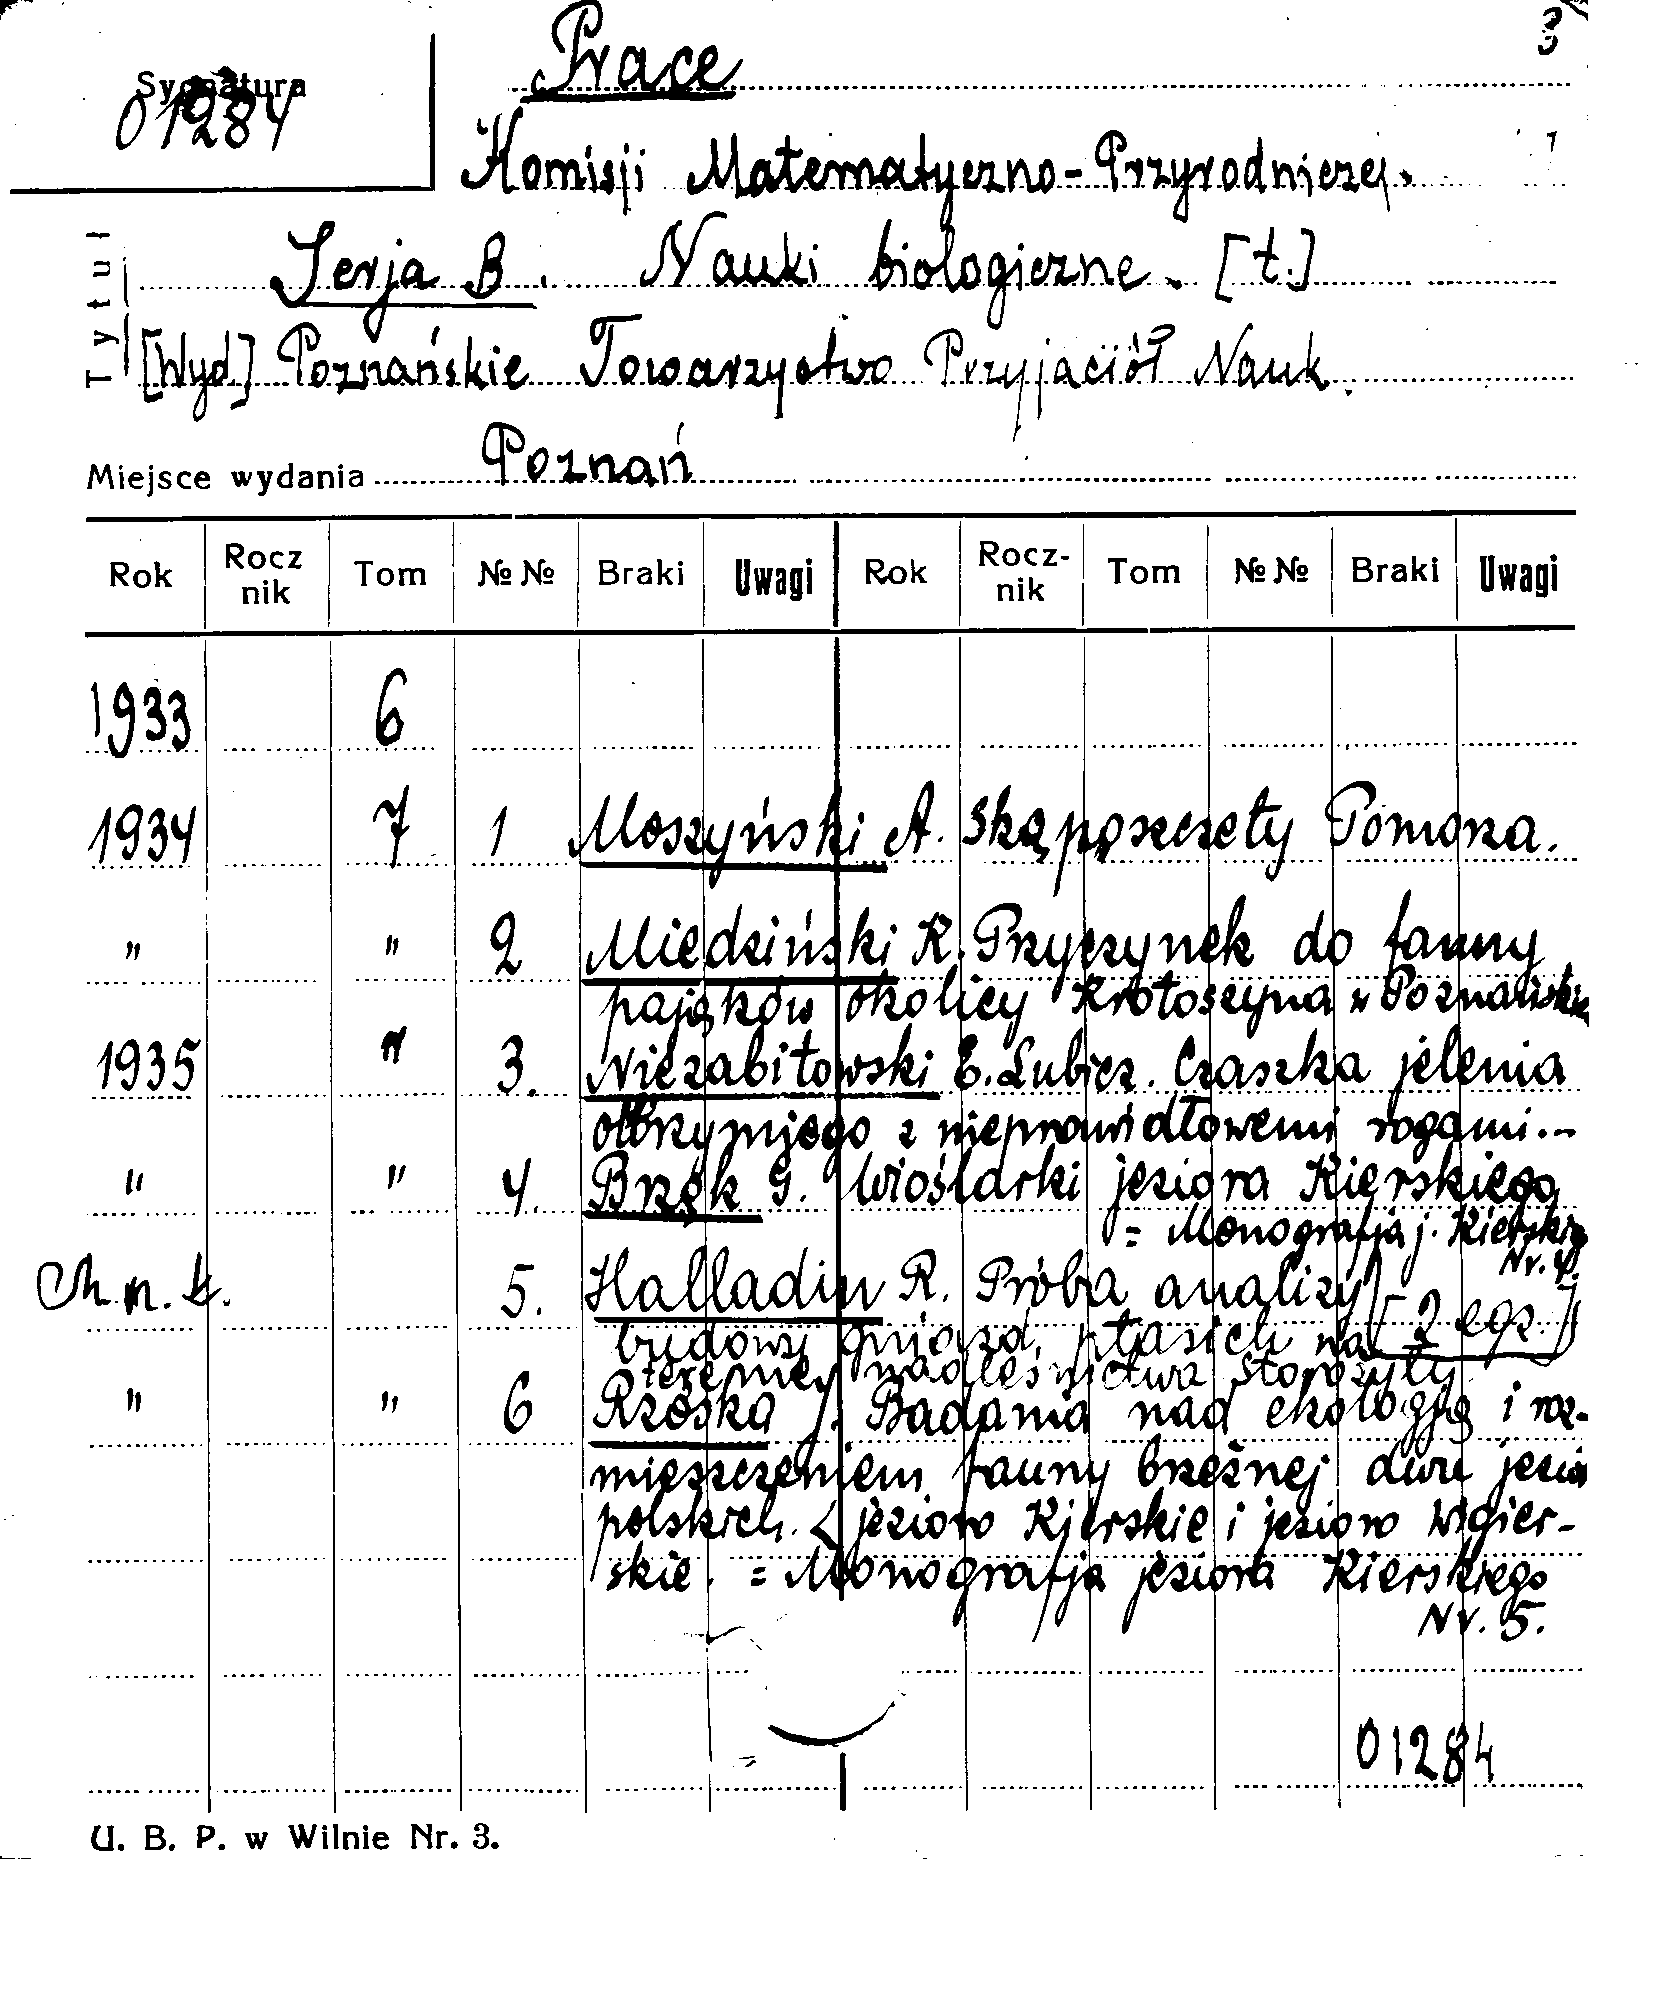 3
Sygnatura
01284
Prace
Komisji Matematyczno-Przyrodniczej.
Tytuł
Serja B. Nauki biologiczne. [t.]
[Wyd.] Poznańskie Towarzystwo Przyjaciół Nauk.
Miejsce wydania Poznań
Rok Rocz nik Tom №№ Braki Uwagi Rok Rocz-nik Tom №№ Braki Uwagi
1933 6
1934 7 1 Moszyński A. Skąposzczety Pomorza.
" " 2 Miedziński K. Przyczynek do fauny
pająków okolicy Krotoszyna w Poznańskie
1935 " 3. Niezabitowski E. Lubicz. Czaszka jelenia
olbrzymiego z nieprawidłowemi rogami.-
" " 4. Brzęk G. Wioślarki jeziora Kierskiego
= Monografja j. Kierskieg
Nr. 4.
5. Halladin R. Próba analizy
budowy gniazd ptasich na [2 egz.]
terenie nadleśnictwa
" " 6 Rzóska J. Badania nad ekologją i roz-
mieszczeniem fauny brzeżnej dwu jezior
polskich. (jezioro Kierskie i jezioro Wigier-
skie. = Monografja jeziora Kierskiego
Nr. 5.
01284
U. B. P. w Wilnie Nr. 3.